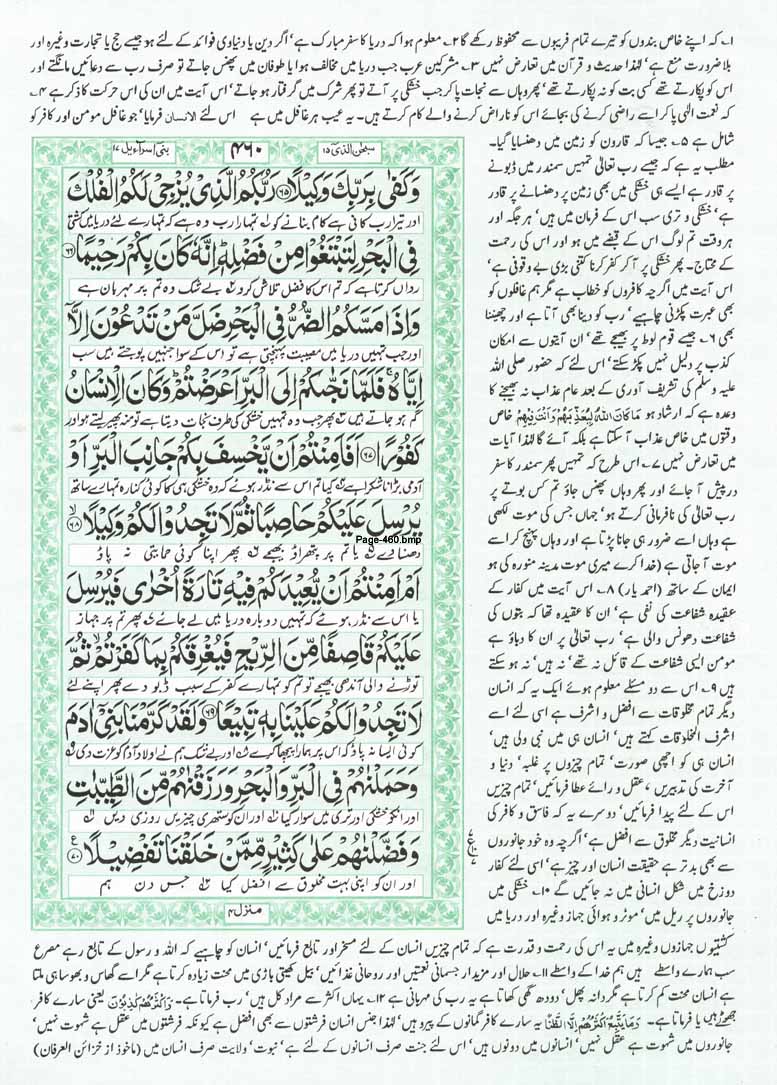 ۱۔ کہ اپنے خاص بندوں کو تیرے تمام فریبوں سے محفوظ رکھے گا ۲۔ معلوم ہوا کہ دریا کا سفر مبارک ہے' اگر دین یا دنیاوی فوائد کے لئے ہو جیسے حج یا تجارت وغیرہ اور
بلا ضرورت منع ہے' لہٰذا حدیث و قرآن میں تعارض نہیں ۳۔ مشرکین عرب جب دریا میں مخالف ہوا یا طوفان میں پھنس جاتے تو صرف رب سے دعائیں مانگتے اور
اس کو پکارتے تھے کسی بت کو نہ پکارتے تھے' پھر وہاں سے نجات پا کر جب خشکی پر آتے تو پھر شرک میں گرفتار ہو جاتے' اس آیت میں ان کی اس حرکت کا ذکر ہے ۴۔
کہ نعمت الٰہی پا کر اسے راضی کرنے کی بجائے اس کو ناراض کرنے والے کام کرتے ہیں۔ یہ عیب ہر غافل میں ہے اس لئے الانسان فرمایا' جو غافل مومن اور کافر کو
شامل ہے ۵۔ جیسا کہ قارون کو زمین میں دھنسایا گیا۔
مطلب یہ ہے کہ جیسے رب تعالیٰ تمہیں سمندر میں ڈبونے
پر قادر ہے ایسے ہی خشکی میں بھی زمین پر دھنسانے پر قادر
ہے' خشکی و تری سب اس کے فرمان میں ہیں' ہر جگہ اور
ہر وقت تم لوگ اس کے قبضے میں ہو اور اس کی رحمت
کے محتاج۔ پھر خشکی پر آ کر کفر کرنا کتنی بڑی بے وقوفی ہے'
اس آیت میں اگرچہ کافروں کو خطاب ہے مگر ہم غافلوں کو
بھی عبرت پکڑنی چاہیے' رب کو دینا بھی آتا ہے اور چھیننا
بھی ۶۔ جیسے قوم لوط پر بھیجے تھے' ان آیتوں سے امکان
کذب پر دلیل نہیں پکڑ سکتے' اس لئے کہ حضور صلی اللہ
علیہ وسلم کی تشریف آوری کے بعد عام عذاب نہ بھیجنے کا
وعدہ ہے کہ ارشاد ہو مَا كَانَ اللهُ لِيُعَذِّبَهُمْ وَاَنْتَ فِيْهِمْ خاص
وقتوں میں خاص عذاب آ سکتا ہے بلکہ آئے گا لہٰذا آیات
میں تعارض نہیں ۷۔ اس طرح کہ تمہیں پھر سمندر کا سفر
درپیش آ جائے اور پھر وہاں پھنس جاؤ تم کس بوتے پر
رب تعالیٰ کی نافرمانی کرتے ہو' جہاں جس کی موت لکھی
ہے وہاں اسے ضرور ہی جانا پڑتا ہے اور وہاں پہنچ کر اسے
موت آ جاتی ہے (خدا کرے میری موت مدینہ منورہ کی ہو
ایمان کے ساتھ (احمد یار) ۸۔ اس آیت میں کفار کے
عقیدہ شفاعت کی نفی ہے' ان کا عقیدہ تھا کہ بتوں کی
شفاعت دھونس والی ہے' رب تعالیٰ پر ان کا دباؤ ہے
مومن ایسی شفاعت کے قائل نہ تھے' نہ ہیں' نہ ہو سکتے
ہیں ۹۔ اس سے دو مسئلے معلوم ہوئے ایک یہ کہ انسان
دیگر تمام مخلوقات سے افضل و اشرف ہے اسی لئے اسے
اشرف المخلوقات کہتے ہیں' انسان ہی میں نبی ولی ہیں'
انسان ہی کو اچھی صورت' تمام چیزوں پر غلبہ' دنیا و
آخرت کی تدبیریں' عقل و رائے عطا فرمائیں' تمام چیزیں
اس کے لئے پیدا فرمائیں' دوسرے یہ کہ فاسق و کافر کی
انسانیت دیگر مخلوق سے افضل ہے' اگرچہ وہ خود جانوروں
سے بھی بدتر ہے حقیقت انسان اور چیز ہے' اسی لئے کفار
دوزخ میں شکل انسانی میں نہ جائیں گے ۱۰۔ خشکی میں
جانوروں پر ریل میں' موٹر و ہوائی جہاز وغیرہ اور دریا میں
سبحٰن الذی ۱۵
۴۶۰
بنی اسرآءیل ۱۷
وَكَفٰى بِرَبِّكَ وَكِيْلًا ﴿۶۵﴾ رَبُّكُمُ الَّذِىْ يُزْجِىْ لَكُمُ الْفُلْكَ
اور تیرا رب کافی ہے کام بنانے کو لہ تمہارا رب وہ ہے کہ تمہارے لئے دریا میں کشتی
فِى الْبَحْرِ لِتَبْتَغُوْا مِنْ فَضْلِهٖ اِنَّهٗ كَانَ بِكُمْ رَحِيْمًا ﴿۶۶﴾
رواں کرتا ہے کہ تم اس کا فضل تلاش کرو بے شک وہ تم پر مہربان ہے
وَاِذَا مَسَّكُمُ الضُّرُّ فِى الْبَحْرِ ضَلَّ مَنْ تَدْعُوْنَ اِلَّاۤ
اور جب تمہیں دریا میں مصیبت پہنچتی ہے تو اس کے سوا جنہیں پوجتے ہیں سب
اِيَّاهُ فَلَمَّا نَجّٰىكُمْ اِلَى الْبَرِّ اَعْرَضْتُمْ وَكَانَ الْاِنْسَانُ
گم ہو جاتے ہیں پھر جب وہ تمہیں خشکی کی طرف نجات دیتا ہے تو منہ پھیر لیتے ہو اور
كَفُوْرًا ﴿۶۷﴾ اَفَاَمِنْتُمْ اَنْ يَّخْسِفَ بِكُمْ جَانِبَ الْبَرِّ اَوْ
آدمی بڑا ناشکرا ہے کیا تم اس سے نڈر ہوئے کہ وہ خشکی ہی کا کوئی کنارہ تمہارے ساتھ
يُرْسِلَ عَلَيْكُمْ حَاصِبًا ثُمَّ لَا تَجِدُوْا لَكُمْ وَكِيْلًا ﴿۶۸﴾
Page-460.bmp
دھنسا دے یا تم پر پتھراؤ بھیجے پھر اپنا کوئی حمایتی نہ پاؤ
اَمْ اَمِنْتُمْ اَنْ يُّعِيْدَكُمْ فِيْهِ تَارَةً اُخْرٰى فَيُرْسِلَ
یا اس سے نڈر ہوئے کہ تمہیں دوبارہ دریا میں لے جائے پھر تم پر جہاز
عَلَيْكُمْ قَاصِفًا مِّنَ الرِّيْحِ فَيُغْرِقَكُمْ بِمَا كَفَرْتُمْ ثُمَّ
توڑنے والی آندھی بھیجے تو تم کو تمہارے کفر کے سبب ڈبو دے پھر اپنے لئے
لَا تَجِدُوْا لَكُمْ عَلَيْنَا بِهٖ تَبِيْعًا ﴿۶۹﴾ وَلَقَدْ كَرَّمْنَا بَنِىْۤ اٰدَمَ
کوئی ایسا نہ پاؤ کہ اس پر ہمارا پیچھا کرے اور بے شک ہم نے اولاد آدم کو عزت دی
وَحَمَلْنٰهُمْ فِى الْبَرِّ وَالْبَحْرِ وَرَزَقْنٰهُمْ مِّنَ الطَّيِّبٰتِ
اور انکو خشکی اور تری میں سوار کیا اور ان کو ستھری چیزیں روزی دیں
وَفَضَّلْنٰهُمْ عَلٰى كَثِيْرٍ مِّمَّنْ خَلَقْنَا تَفْضِيْلًا ﴿۷۰﴾
اور ان کو اپنی بہت مخلوق سے افضل کیا جس دن ہم
منزل ۴
کشتیوں جہازوں وغیرہ میں یہ اس کی رحمت و قدرت ہے کہ تمام چیزیں انسان کے لئے مسخر اور تابع فرمائیں' انسان کو چاہیے کہ اللہ و رسول کے تابع رہے مصرع
سب ہمارے واسطے ہیں ہم خدا کے واسطے ۱۱۔ حلال اور مزیدار جسمانی نعمتیں اور روحانی غذائیں' بیل کھیتی باڑی میں محنت زیادہ کرتا ہے مگر اسے گھاس و بھوسا ہی ملتا
ہے انسان محنت کم کرتا ہے مگر دانہ پھل' دودھ گھی کھاتا ہے یہ رب کی مہربانی ہے ۱۲۔ یہاں اکثر سے مراد کل ہیں' رب فرماتا ہے۔ وَاَكْثَرُهُمْ كٰذِبُوْنَ یعنی سارے کافر
جھوٹے ہیں یا فرماتا ہے۔ وَمَا يَتَّبِعُ اَكْثَرُهُمْ اِلَّا ظَنًّا یہ سارے کافر گمانوں کے پیرو ہیں' لہٰذا جنس انسان فرشتوں سے بھی افضل ہے کیونکہ فرشتوں میں عقل ہے شہوت نہیں'
جانوروں میں شہوت ہے عقل نہیں' انسانوں میں دونوں ہیں' اس لئے جنت صرف انسانوں کے لئے ہے' نبوت' ولایت صرف انسان میں (ماخوذ از خزائن العرفان)